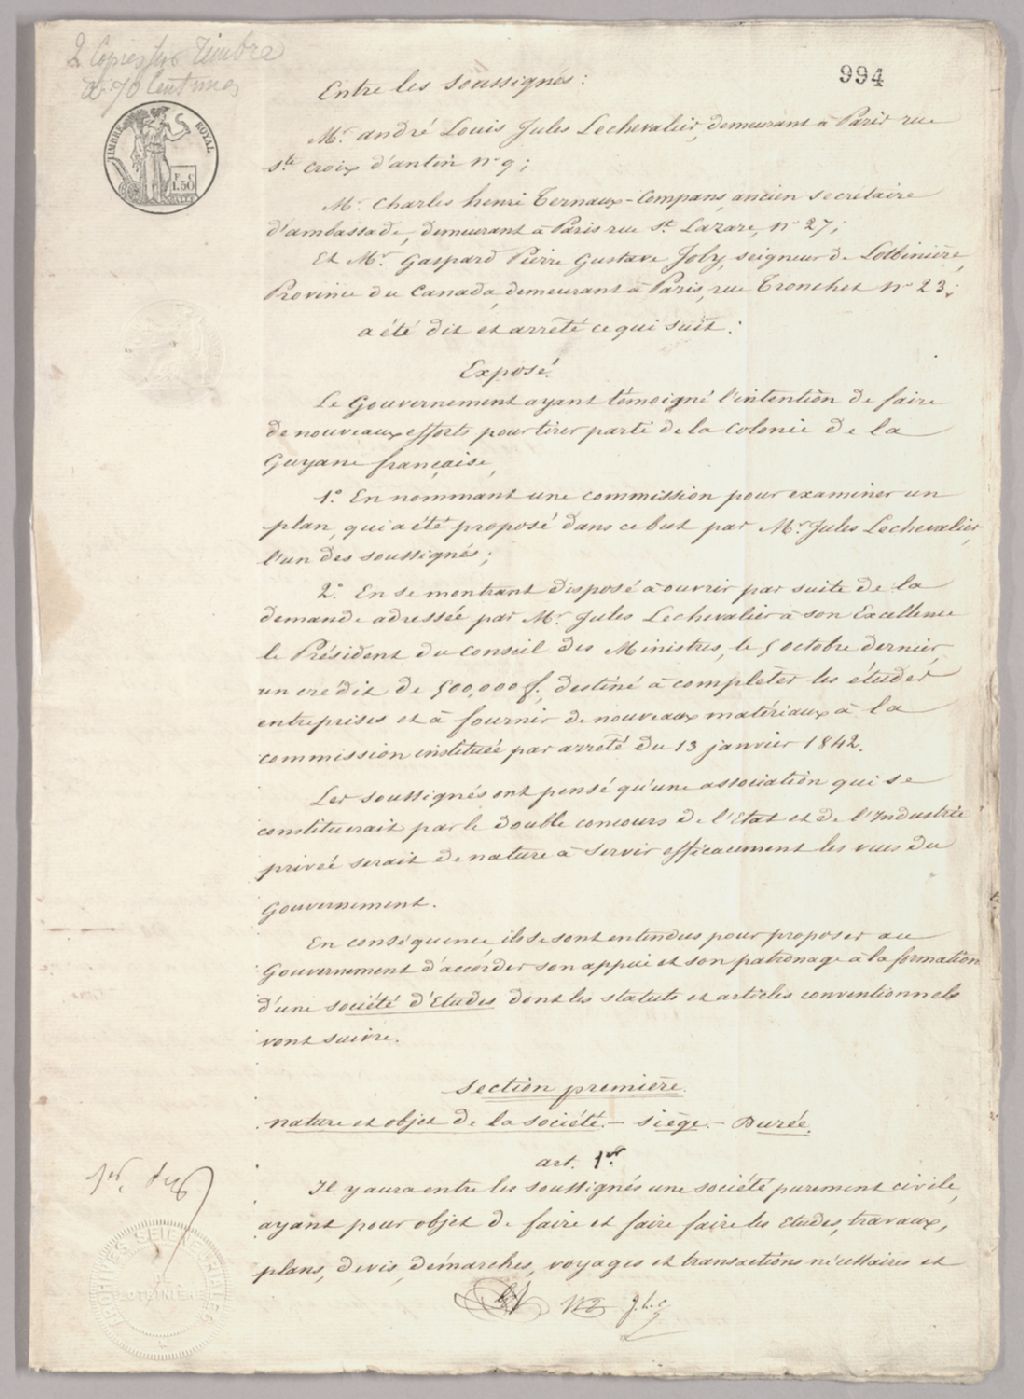 2 Copies sur Timbre
à 70 Centimes
994
TIMBRE ROYAL
F. C.
1.50
Entre les soussignés :
Mr. andré Louis Jules Lechevalier, demeurant à Paris rue
Ste. Croix d'antin No. 9 ;
Mr. Charles henri Ternaux-Compans, ancien secrétaire
d'ambassade, demeurant à Paris rue St. Lazare, no. 27 ;
Et Mr. Gaspard Pierre Gustave Joly, seigneur de Lotbinière,
Province du Canada, demeurant à Paris, rue Tronchet No. 23 ;
a été dit et arrêté ce qui suit :
Exposé.
Le Gouvernement ayant témoigné l'intention de faire
de nouveaux efforts pour tirer parti de la colonie de la
Guyane française,
1.o En nommant une commission pour examiner un
plan, qui a été proposé dans ce but par Mr. Jules Lechevalier,
l'un des soussignés ;
2.o En se montrant disposé à ouvrir par suite de la
demande adressée par Mr. Jules Lechevalier à son Excellence
le Président du Conseil des Ministres, le 5 octobre dernier,
un credit de 500,000 f., destiné à compléter les études
entreprises et à fournir de nouveaux matériaux à la
commission instituée par arrêté du 13 janvier 1842.
Les soussignés ont pensé qu'une association qui se
constituerait par le double concours de l'Etat et de l'Industrie
privée serait de nature à servir efficacement les vues du
Gouvernement.
En conséquence, ils se sont entendus pour proposer au
Gouvernement d'accorder son appui et son patronage à la formation
d'une société d'Etudes dont les statuts et articles conventionnels
vont suivre.
Section première.
nature et objet de la société. - siège. - Durée.
art. 1er.
Il y aura entre les soussignés une société purement civile,
ayant pour objet de faire et faire faire les Etudes, travaux,
plans, devis, démarches, voyages et transactions nécessaires et
J. L. C
ARCHIVES SEIGNEURIALES
LOTBINIERE